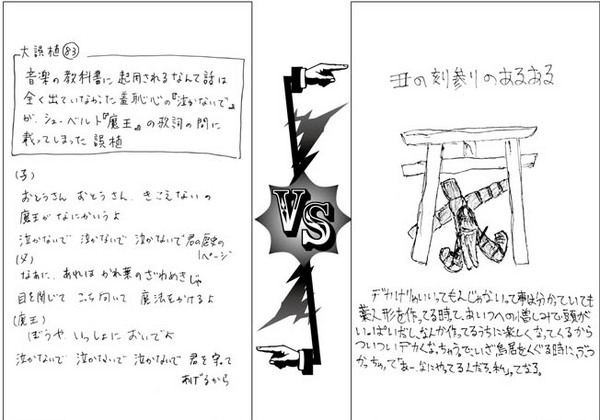 大誤植83
音楽の教科書に起用されるなんて話は
全く出ていなかった羞恥心の『泣かないで』
が、シューベルト『魔王』の歌詞の間に
載ってしまった誤植
(子)
おとうさん おとうさん、きこえないの
魔王がなにかいうよ
泣かないで 泣かないで 泣かないで 君の歴史の
1ページ
(父)
なあに、あれは かれ葉のざわめきじゃ
目を閉じて こっち向いて 魔法をかけるよ
(魔王)
ぼうや、いっしょに おいでよ
泣かないで 泣かないで 泣かないで 君を守って
あげるから
VS
丑の刻参りのあるある
デカけりゃいいってもんじゃないって事は分かっていても
藁人形を作ってる時って、あいつへの憎しみで頭が
いっぱいだし、なんか作ってるうちに楽しくなってくるから
ついついデカくなっちゃって、いざ鳥居をくぐる時に、ぶつ
かっちゃって「あー、なにやってるんだろ、私」ってなる。